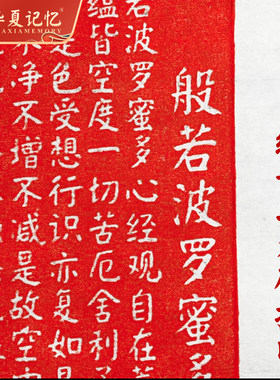 华夏记忆
HUAXIAMEMORY
般若波罗蜜多
若波罗蜜多心经观自在菩
蕴皆空度一切苦厄舍利子
是色受想行识亦复如是
净不增不减是故空中